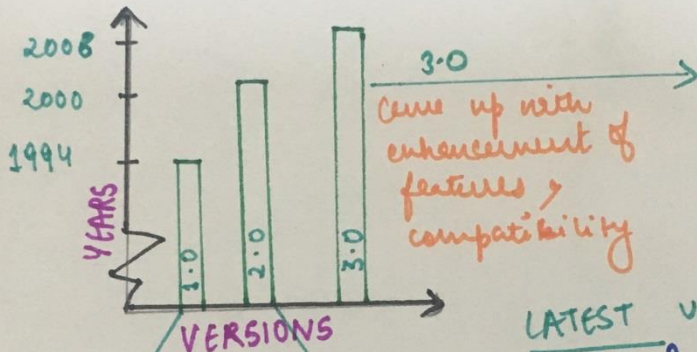 2008
2000
1994
YEARS
1.0
2.0
3.0
VERSIONS
3.0
came up with
enhancement of
features,
compatibility
LATEST V